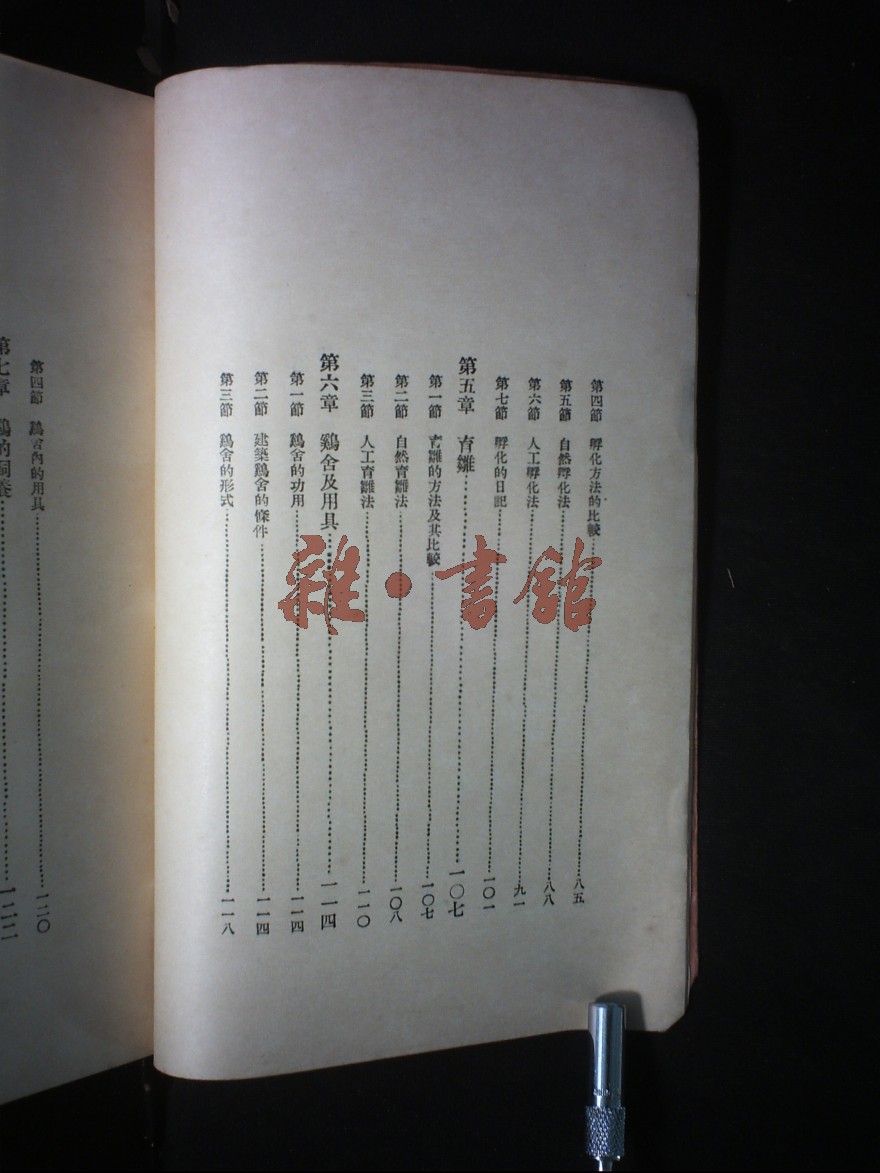 第四節 孵化方法的比較……八五
第五節 自然孵化法……八八
第六節 人工孵化法……九一
第七節 孵化的日記……一〇一
第五章 育雛……一〇七
第一節 育雛的方法及其比較……一〇七
第二節 自然育雛法……一〇八
第三節 人工育雛法……一一〇
第六章 鷄舍及用具……一一四
第一節 鷄舍的功用……一一四
第二節 建築鷄舍的條件……一一四
第三節 鷄舍的形式……一一八
第四節 鷄舍內的用具……一二〇
第七章 鷄的飼養……一二二
雜·書館